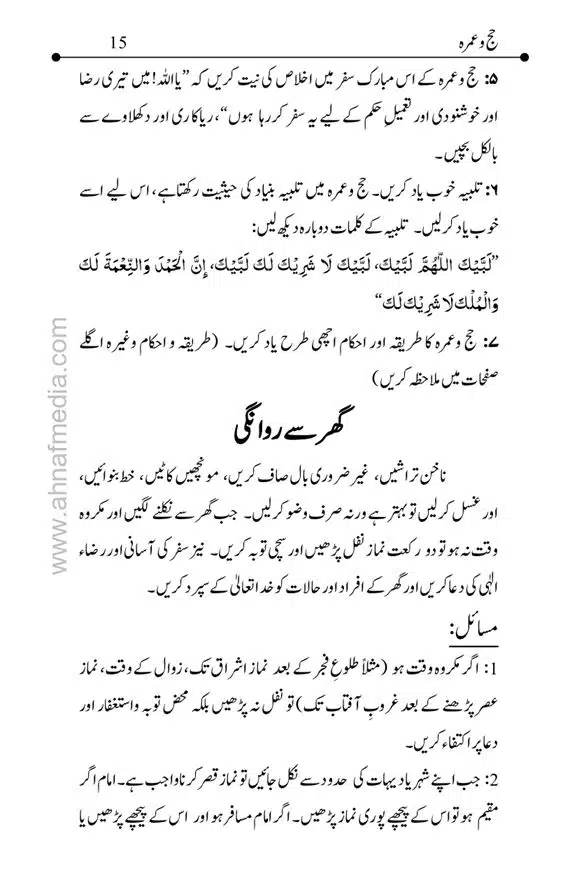 حج و عمرہ 15
۵: حج و عمرہ کے اس مبارک سفر میں اخلاص کی نیت کریں کہ ”یااللہ! میں تیری رضا
اور خوشنودی اور تعمیلِ حکم کے لیے یہ سفر کر رہا ہوں“، ریاکاری اور دکھلاوے سے
بالکل بچیں۔
۶: تلبیہ خوب یاد کریں۔ حج و عمرہ میں تلبیہ بنیاد کی حیثیت رکھتا ہے، اس لیے اسے
خوب یاد کر لیں۔ تلبیہ کے کلمات دوبارہ دیکھ لیں:
”لَبَّيْكَ اللّٰهُمَّ لَبَّيْكَ، لَبَّيْكَ لَا شَرِيْكَ لَكَ لَبَّيْكَ، إِنَّ الْحَمْدَ وَالنِّعْمَةَ لَكَ
وَالْمُلْكَ لَا شَرِيْكَ لَكَ“
۷: حج و عمرہ کا طریقہ اور احکام اچھی طرح یاد کریں۔ (طریقہ و احکام وغیرہ اگلے
صفحات میں ملاحظہ کریں)
گھر سے روانگی
ناخن تراشیں، غیر ضروری بال صاف کریں، مونچھیں کاٹیں، خط بنوائیں،
اور غسل کر لیں تو بہتر ہے ورنہ صرف وضو کر لیں۔ جب گھر سے نکلنے لگیں اور مکروہ
وقت نہ ہو تو دو رکعت نماز نفل پڑھیں اور سچی توبہ کریں۔ نیز سفر کی آسانی اور رضاء
الٰہی کی دعا کریں اور گھر کے افراد اور حالات کو خدا تعالیٰ کے سپرد کریں۔
مسائل:
1: اگر مکروہ وقت ہو (مثلاً طلوعِ فجر کے بعد نماز اشراق تک، زوال کے وقت، نماز
عصر پڑھنے کے بعد غروبِ آفتاب تک) تو نفل نہ پڑھیں بلکہ محض توبہ و استغفار اور
دعا پر اکتفاء کریں۔
2: جب اپنے شہر یا دیہات کی حدود سے نکل جائیں تو نماز قصر کرنا واجب ہے۔ امام اگر
مقیم ہو تو اس کے پیچھے پوری نماز پڑھیں۔ اگر امام مسافر ہو اور اس کے پیچھے پڑھیں یا
www.ahnafmedia.com